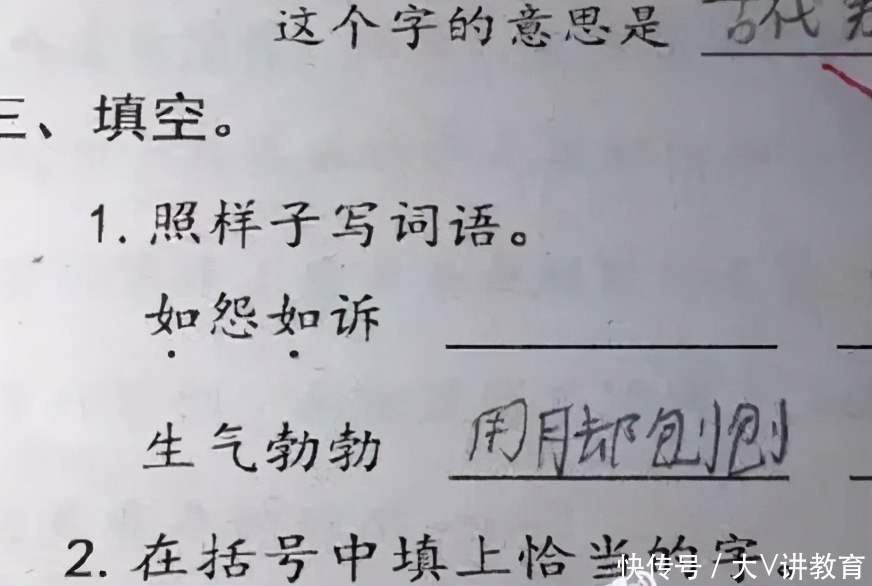 这个字的意思是 古代
三、填空。
1. 照样子写词语。
如怨如诉
生气勃勃 用脚刨刨
2. 在括号中填上恰当的字。
快传号/大V讲教育